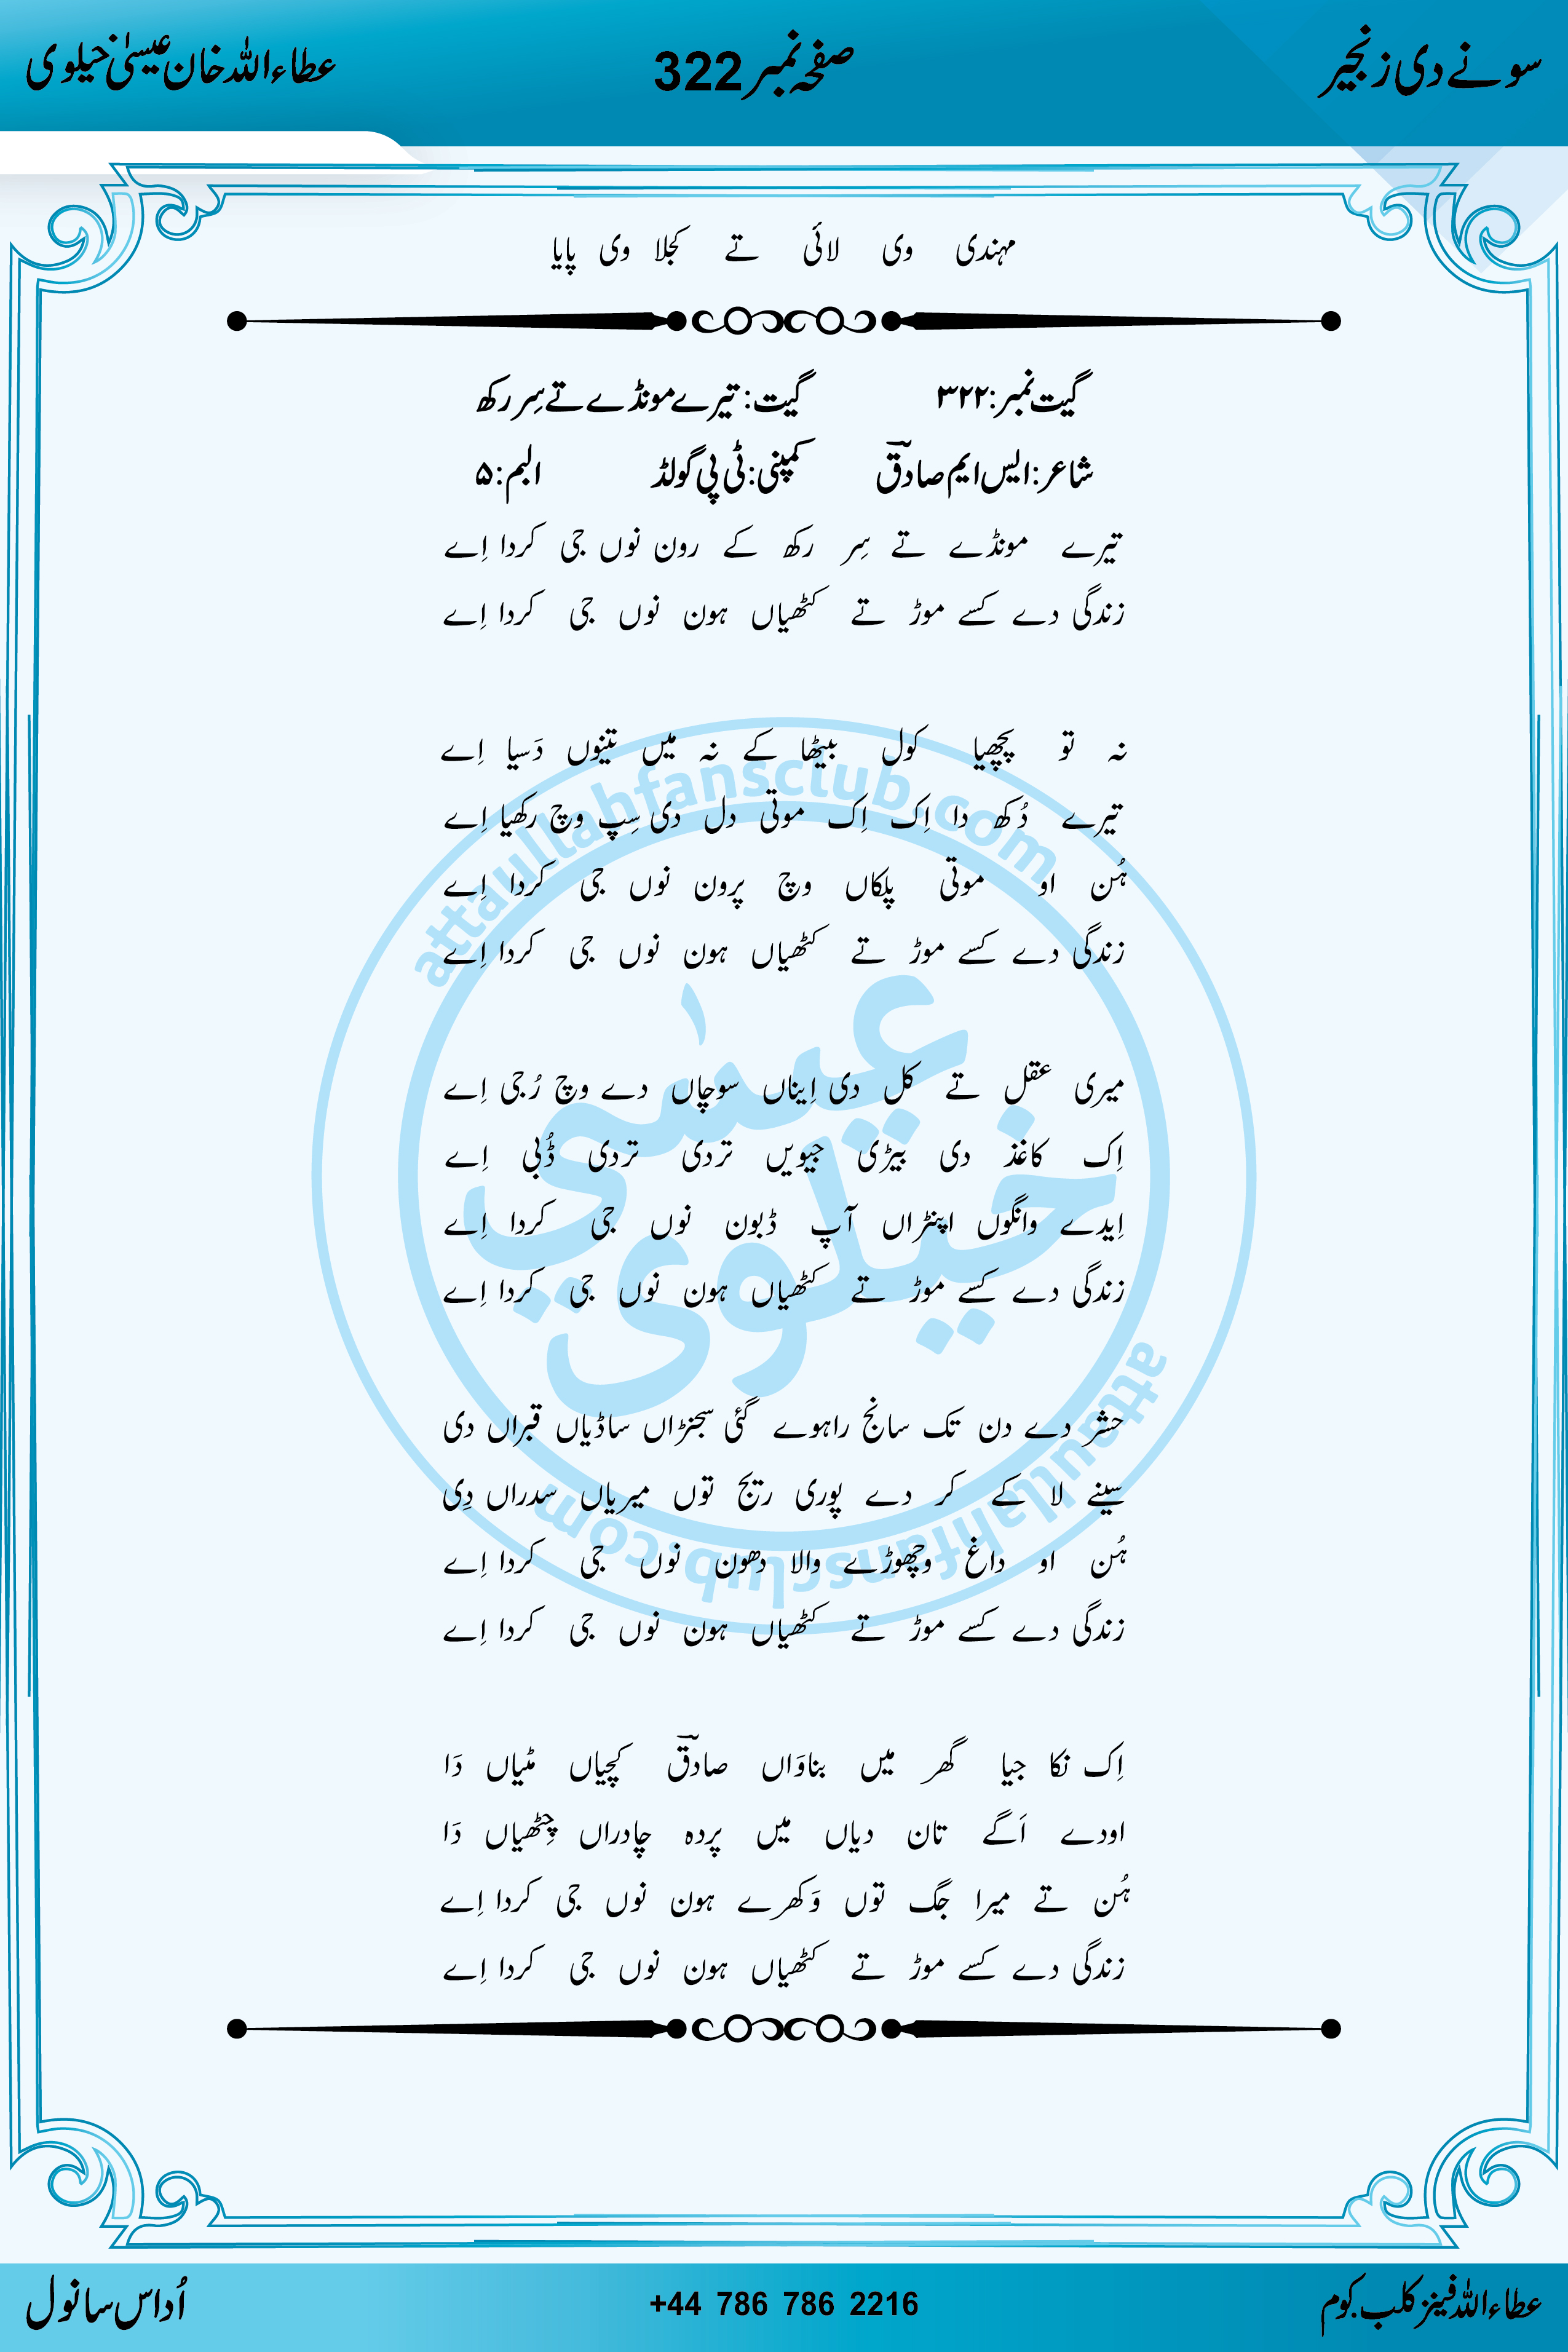 سونے دی زنجیر صفحہ نمبر 322 عطاءاللہ خان عیسیٰ خیلوی
مہندی وی لائی تے کجلا وی پایا
گیت نمبر: ۳۲۲ گیت: تیرے مونڈے تے سِر رکھ
شاعر: ایس ایم صادقؔ کمپنی: ٹی پی گولڈ البم: ۵
تیرے مونڈے تے سِر رکھ کے رون نوں جی کردا اِے
زندگی دے کسے موڑ تے کٹھیاں ہون نوں جی کردا اِے
نہ تو پچھیا کول بیٹھا کے نہ میں تینوں دَسیا اِے
تیرے دُکھ دا اِک اِک موتی دل دی سِپ وچ رکھیا اِے
ہُن او موتی پلکاں وچ پرون نوں جی کردا اِے
زندگی دے کسے موڑ تے کٹھیاں ہون نوں جی کردا اِے
میری عقل تے کل دی اِیناں سوچاں دے وچ رُجی اِے
اِک کاغذ دی بیڑی جیویں تردی تردی ڈُبی اِے
اِیدے وانگوں اپنڑاں آپ ڈبون نوں جی کردا اِے
زندگی دے کسے موڑ تے کٹھیاں ہون نوں جی کردا اِے
حشر دے دن تک سانج راہوے گئی سجنڑاں ساڈیاں قبراں دی
سینے لا کے کر دے پوری ریج توں میریاں سدراں دِی
ہُن او داغ وچھوڑے والا دھون نوں جی کردا اِے
زندگی دے کسے موڑ تے کٹھیاں ہون نوں جی کردا اِے
اِک نکا جیا گھر میں بناوَاں صادقؔ کچیاں مٹیاں دَا
اودے اَگے تان دیاں میں پردہ چادراں چِٹھیاں دَا
ہُن تے میرا جگ توں وَکھرے ہون نوں جی کردا اِے
زندگی دے کسے موڑ تے کٹھیاں ہون نوں جی کردا اِے
attaullahfansclub.com
عیسٰی
خیلوی
attaullahfansclub.com
عطاءاللہ فینز کلب.کوم +44 786 786 2216 اُداس سانول